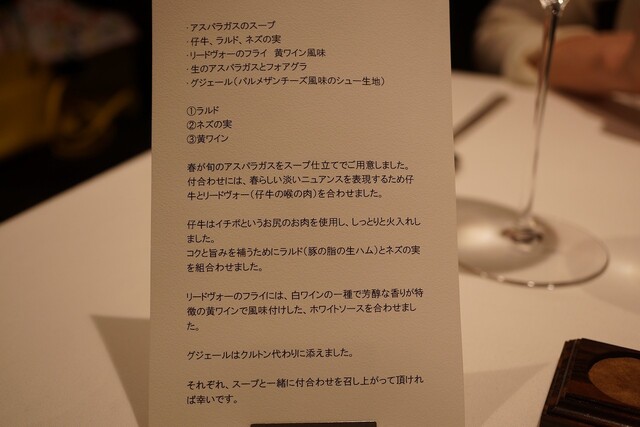 ・アスパラガスのスープ
・仔牛、ラルド、ネズの実
・リードヴォーのフライ 黄ワイン風味
・生のアスパラガスとフォアグラ
・グジェール（パルメザンチーズ風味のシュー生地）
①ラルド
②ネズの実
③黄ワイン
春が旬のアスパラガスをスープ仕立てでご用意しました。
付合わせには、春らしい淡いニュアンスを表現するため仔
牛とリードヴォー（仔牛の喉の肉）を合わせました。
仔牛はイチボというお尻のお肉を使用し、しっとりと火入れし
ました。
コクと旨みを補うためにラルド（豚の脂の生ハム）とネズの実
を組合わせました。
リードヴォーのフライには、白ワインの一種で芳醇な香りが特
徴の黄ワインで風味付けした、ホワイトソースを合わせまし
た。
グジェールはクルトン代わりに添えました。
それぞれ、スープと一緒に付合わせを召し上がって頂けれ
ば幸いです。